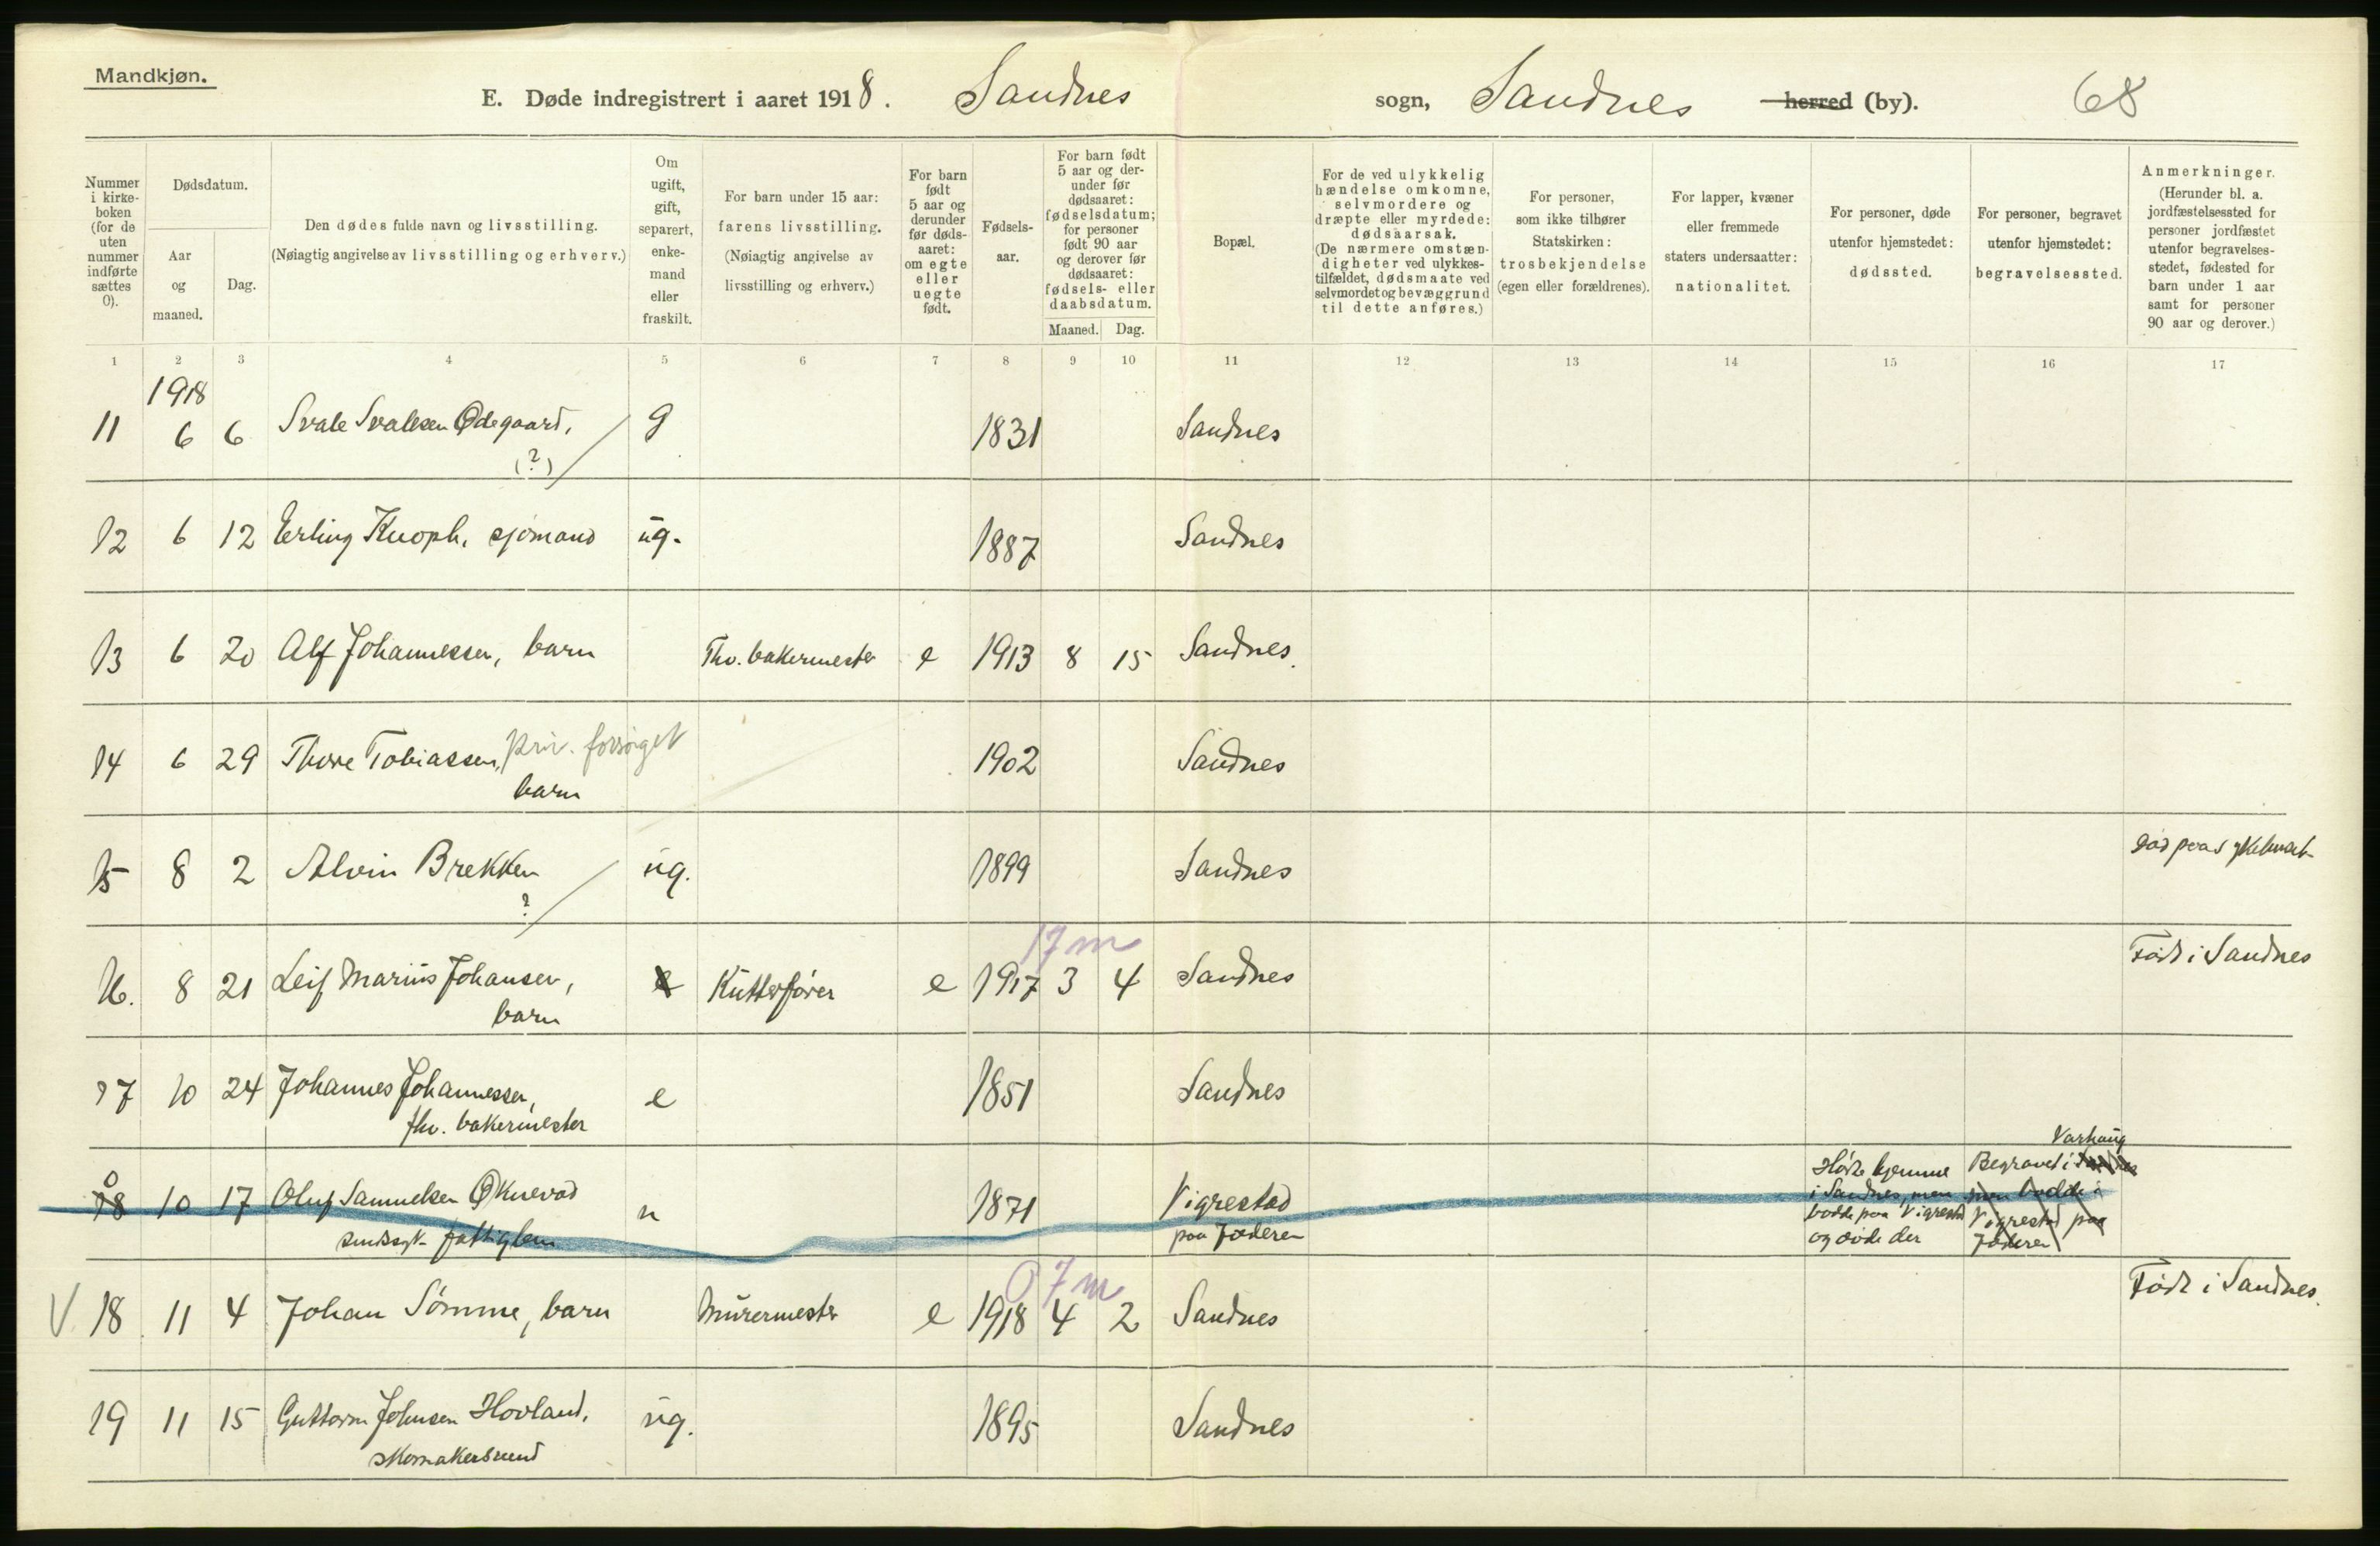 Mandkjøn.
E. Døde indregistrert i aaret 1918. Sandnes sogn, Sandnes herred (by). 68
Nummer i kirkeboken (for de uten nummer indførte sættes 0).
Dødsdatum.
Aar og maaned.
Dag.
Den dødes fulde navn og livsstilling.
(Nøiagtig angivelse av livsstilling og erhverv.)
Om ugift, gift, separert, enkemand eller fraskilt.
For barn under 15 aar: farens livsstilling. (Nøiagtig angivelse av livsstilling og erhverv.)
For barn født 5 aar og derunder før dødsaaret: om egte eller uegte født.
Fødselsaar.
For barn født 5 aar og derunder før dødsaaret: fødselsdatum; for personer født 90 aar og derover før dødsaaret: fødsels- eller daabsdatum.
Maaned. Dag.
Bopæl.
For de ved ulykkelig hændelse omkomne, selvmordere og dræpte eller myrdede: dødsaarsak. (De nærmere omstændigheter ved ulykkestilfældet, dødsmaate ved selvmordet og bevæggrund til dette anføres.)
For personer, som ikke tilhører Statskirken: trosbekjendelse (egen eller forældrenes).
For lapper, kvæner eller fremmede staters undersaatter: nationalitet.
For personer, døde utenfor hjemstedet: dødssted.
For personer, begravet utenfor hjemstedet: begravelsessted.
Anmerkninger. (Herunder bl. a. jordfæstelsessted for personer jordfæstet utenfor begravelsesstedet, fødested for barn under 1 aar samt for personer 90 aar og derover.)
1 2 3 4 5 6 7 8 9 10 11 12 13 14 15 16 17
1918
11 6 6 Svale Svalesen Ødegaard, g 1831 Sandnes
(?)
12 6 12 Erling Knoph, sjømand ug. 1887 Sandnes
13 6 20 Alf Johannessen, barn Fhv. bakermester e 1913 8 15 Sandnes.
14 6 29 Thore Tobiassen, priv. forsørget 1902 Sandnes
barn
15 8 2 Alvin Brekken ug. 1899 Sandnes
?
17 m
16. 8 21 Leif Marius Johansen, Kutterfører e 1917 3 4 Sandnes Født i Sandnes
barn
17 10 24 Johannes Johannessen, e 1851 Sandnes
fhv. bakermester
0
18 10 17 Oluf Samuelsen Øknevad 1871 Vigrestad Hørte hjemme Begravet i Varhaug
sindssyk fattiglem paa Jæderen i Sandnes, men men bodde i
bodde paa Vigrestad Vigrestad paa
og døde der Jæderen
0 7 m
V. 18 11 4 Johan Sømme, barn Murermester e 1918 4 2 Sandnes Født i Sandnes.
19 11 15 Guttorm Johnsen Hovland, ug. 1895 Sandnes
skomakersvend